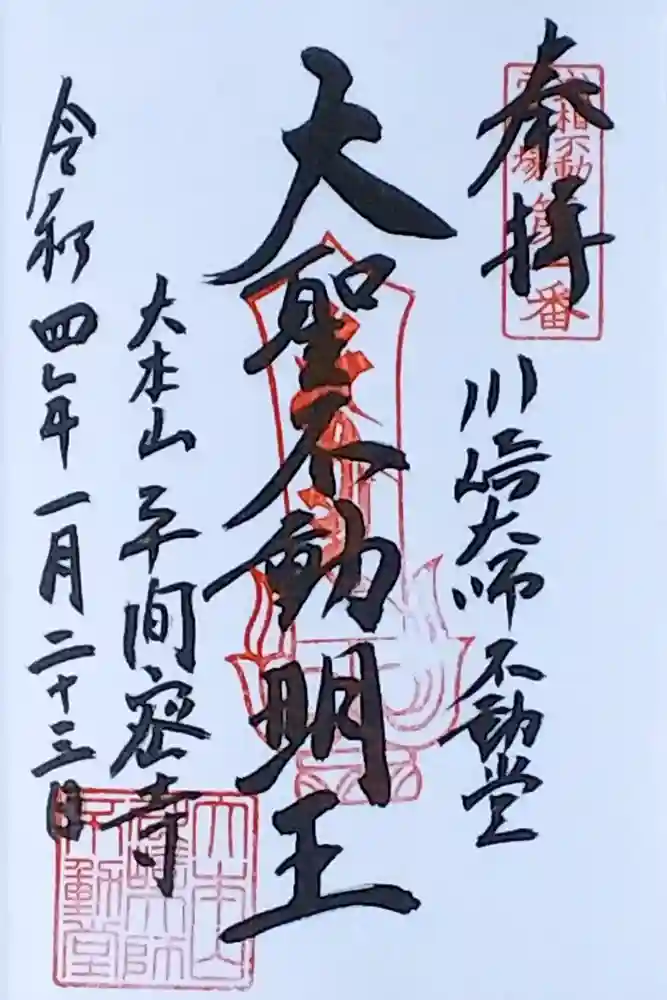 奉拝
武相不動
霊場 第一番
川崎大師 不動堂
大聖不動明王
大本山 平間寺
令和四年一月二十三日
大本山
川崎大師
不動堂